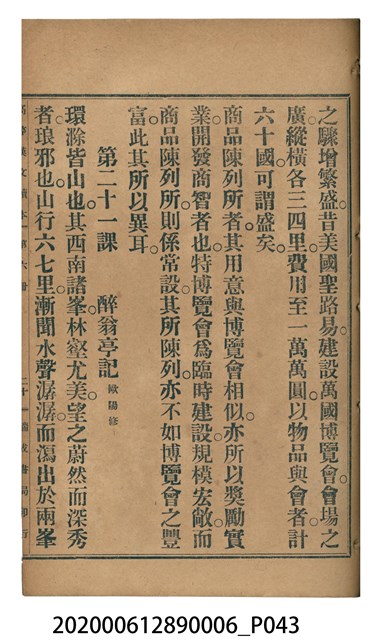 之驟增繁盛昔美國聖路易建設萬國博覽會會場之
廣縱橫各三四里費用至一萬萬圓以物品與會者計
六十國可謂盛矣
商品陳列所者其用意與博覽會相似亦所以獎勵實
業開發商智者也特博覽會爲臨時建設規模宏敞而
商品陳列所則係常設其所陳列亦不如博覽會之豐
富此其所以異耳
第二十一課　醉翁亭記　歐陽修
環滁皆山也其西南諸峯林壑尤美望之蔚然而深秀
者琅邪也山行六七里漸聞水聲潺潺而瀉出於兩峯
202000612890006_P043